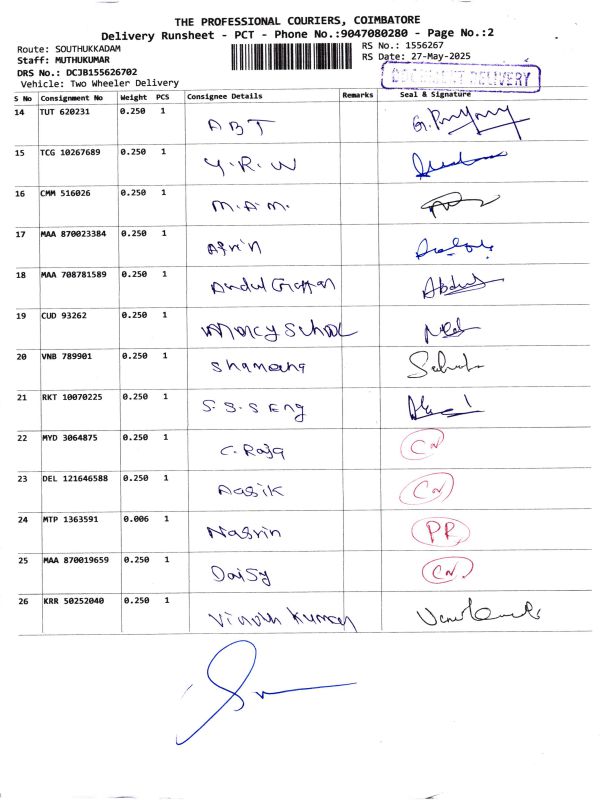 THE PROFESSIONAL COURIERS, COIMBATORE
Delivery Runsheet - PCT - Phone No.:9047080280 - Page No.:2
Route: SOUTHUKKADAM RS No.: 1556267
Staff: MUTHUKUMAR RS Date: 27-May-2025
DRS No.: DCJB155626702
Vehicle: Two Wheeler Delivery
DOCUMENT DELIVERY
S No Consignment No Weight PCS Consignee Details Remarks Seal & Signature
14 TUT 620231 0.250 1 ABT
15 TCG 10267689 0.250 1 Y.R.W
16 CMM 516026 0.250 1 M.A.M.
17 MAA 870023384 0.250 1 Afrin
18 MAA 708781589 0.250 1 Abdul Gaffan Abdul
19 CUD 93262 0.250 1 Mercy School
20 VNB 789901 0.250 1 Shameena
21 RKT 10070225 0.250 1 S.S.S Eng
22 MYD 3064875 0.250 1 C. Raja CN
23 DEL 121646588 0.250 1 Aasik CN
24 MTP 1363591 0.006 1 Nasrin PR
25 MAA 870019659 0.250 1 Daisy CN
26 KRR 50252040 0.250 1 Vinoth Kumar